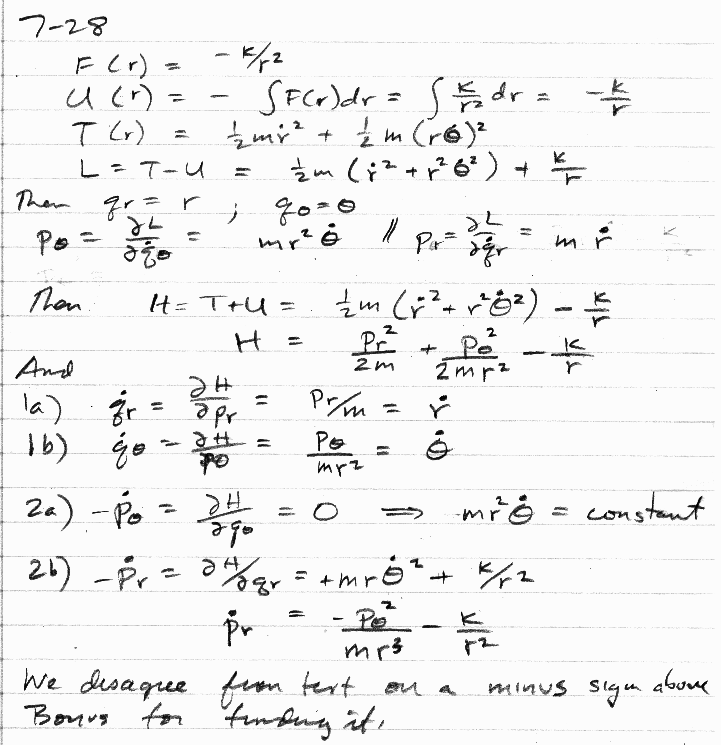 7-28
F(r) = -k/r²
U(r) = - ∫F(r)dr = ∫ k/r² dr = -k/r
T(r) = ½mṙ² + ½m(rθ̇)²
L = T-U = ½m(ṙ² + r²θ̇²) + k/r
Then qr = r ; qθ = θ
pθ = ∂L/∂q̇θ = mr²θ̇ // pr = ∂L/∂q̇r = mṙ
Then H = T+U = ½m(ṙ² + r²θ̇²) - k/r
H = Pr²/2m + Pθ²/2mr² - k/r
And
1a) q̇r = ∂H/∂pr = Pr/m = ṙ
1b) q̇θ = ∂H/pθ = Pθ/mr² = θ̇
2a) -ṗθ = ∂H/∂qθ = 0 ⟹ mr²θ̇ = constant
2b) -ṗr = ∂H/∂qr = +mrθ̇² + k/r²
ṗr = -Pθ²/mr³ - k/r²
We disagree from text on a minus sign above
Bonus for finding it.